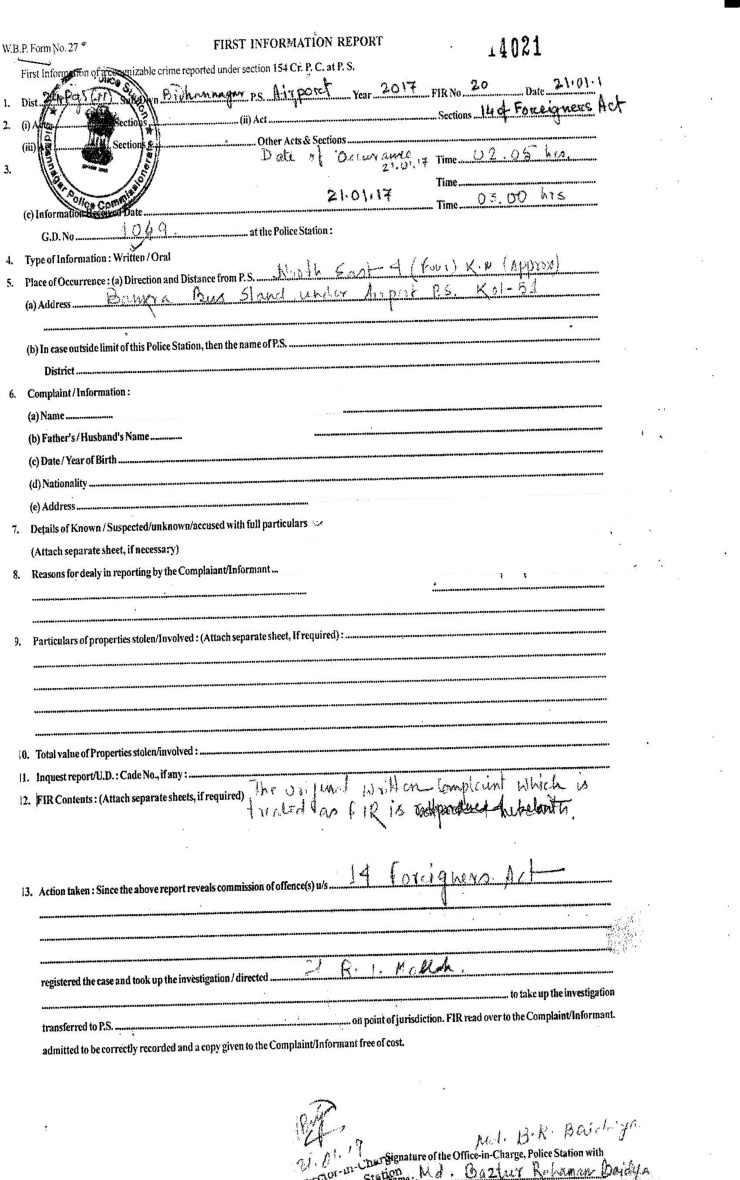 W.B.P. Form No. 27
FIRST INFORMATION REPORT
14021
First Information of a cognizable crime reported under section 154 Cr. P. C. at P. S.
1. Dist. 24 Pgs (N) Subdivn Bidhannagar P.S. Airport Year 2017 FIR No 20 Date 21.01.1
2. (i) Act Sections (ii) Act Sections 14 of Foreigners Act
(iii) Sections Other Acts & Sections
3. Date of Occurance 21.01.17 Time 02.05 hrs.
Time
(c) Information Received Date 21.01.17 Time 03.00 hrs
G.D. No 1049. at the Police Station :
4. Type of Information : Written / Oral
5. Place of Occurrence : (a) Direction and Distance from P.S. North East 4 (Four) K.M (Approx)
(a) Address Bankra Bus Stand under Airport P.S. Kol-51
(b) In case outside limit of this Police Station, then the name of P.S.
District
6. Complaint / Information :
(a) Name
(b) Father's / Husband's Name
(c) Date / Year of Birth
(d) Nationality
(e) Address
7. Details of Known / Suspected/unknown/accused with full particulars
(Attach separate sheet, if necessary)
8. Reasons for dealy in reporting by the Complaiant/Informant ...
9. Particulars of properties stolen/Involved : (Attach separate sheet, If required) :
10. Total value of Properties stolen/involved :
11. Inquest report/U.D. : Cade No., if any :
12. FIR Contents : (Attach separate sheets, if required) The original written complaint which is
treated as FIR is
13. Action taken : Since the above report reveals commission of offence(s) u/s 14 Foreigners Act
registered the case and took up the investigation / directed R. I. Mollah.
to take up the investigation
transferred to P.S. on point of jurisdiction. FIR read over to the Complaint/Informant.
admitted to be correctly recorded and a copy given to the Complaint/Informant free of cost.
Md. B.K. Baidya
21.01.17 Signature of the Office-in-Charge, Police Station with
Station Md. Baztur Rohaman Baidya